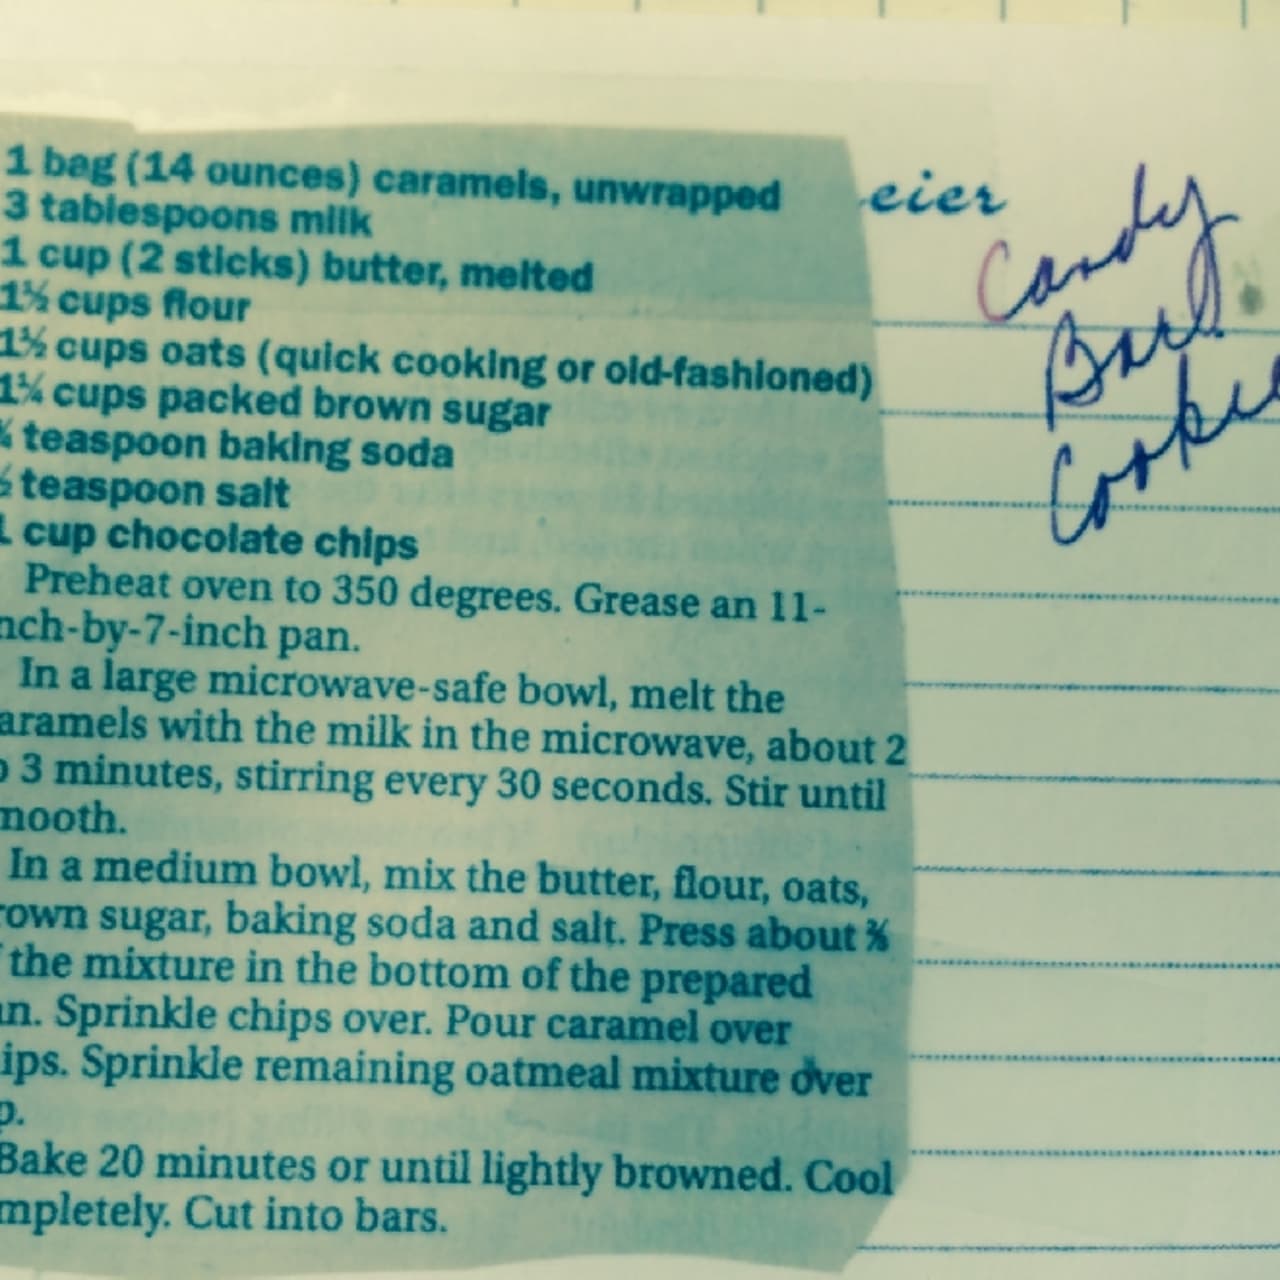 1 bag (14 ounces) caramels, unwrapped
3 tablespoons milk
1 cup (2 sticks) butter, melted
1½ cups flour
1½ cups oats (quick cooking or old-fashioned)
1¼ cups packed brown sugar
teaspoon baking soda
½ teaspoon salt
1 cup chocolate chips
Preheat oven to 350 degrees. Grease an 11-
nch-by-7-inch pan.
In a large microwave-safe bowl, melt the
aramels with the milk in the microwave, about 2
o 3 minutes, stirring every 30 seconds. Stir until
mooth.
In a medium bowl, mix the butter, flour, oats,
rown sugar, baking soda and salt. Press about
f the mixture in the bottom of the prepared
an. Sprinkle chips over. Pour caramel over
ips. Sprinkle remaining oatmeal mixture over
p.
Bake 20 minutes or until lightly browned. Cool
mpletely. Cut into bars.
eier
Candy
Bar
Cookie